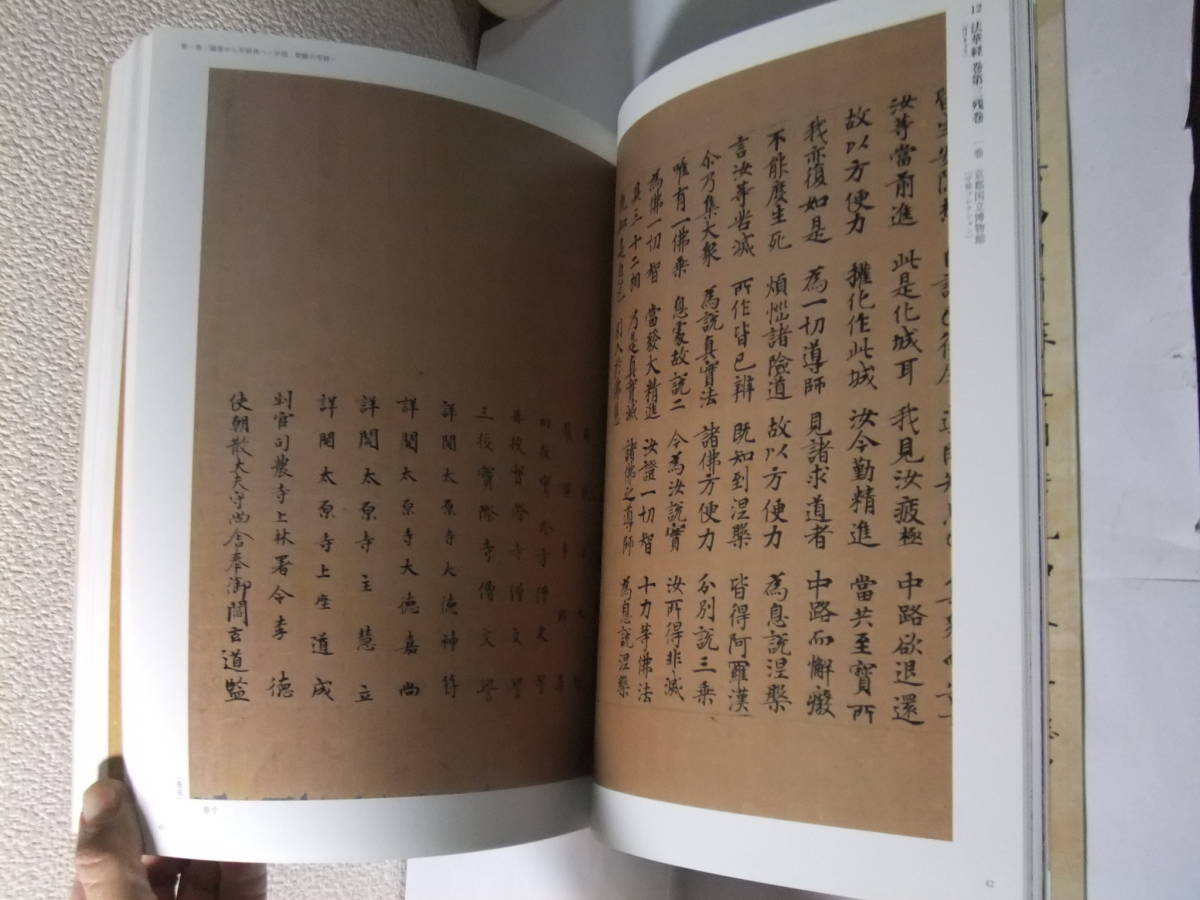 12 法華経 巻第三 残巻 一巻 京都国立博物館
[守屋コレクション]
汝等當前進 此是化城耳 我見汝疲極 中路欲退還
故以方便力 權化作此城 汝今勤精進 當共至寶所
我亦復如是 為一切導師 見諸求道者 中路而懈癈
不能度生死 煩惱諸險道 故以方便力 為息說涅槃
言汝等苦滅 所作皆已辨 既知到涅槃 皆得阿羅漢
尒乃集大衆 為說真實法 諸佛方便力 分別說三乗
唯有一佛乗 息處故說二 今為汝說實 汝所得非滅
為佛一切智 當發大精進 汝證一切智 十力等佛法
具三十二相 乃是真實滅 諸佛之導師 為息說涅槃
既知是息已 引入於佛慧
42
再校寶際寺僧文
三校寶際寺僧文
詳閱太原寺大德神符
詳閱太原寺大德嘉尚
詳閱太原寺主慧立
詳閱太原寺上座道成
判官司農寺上林署令李德
使朝散大夫守尚舍奉御閻玄道監
原寸